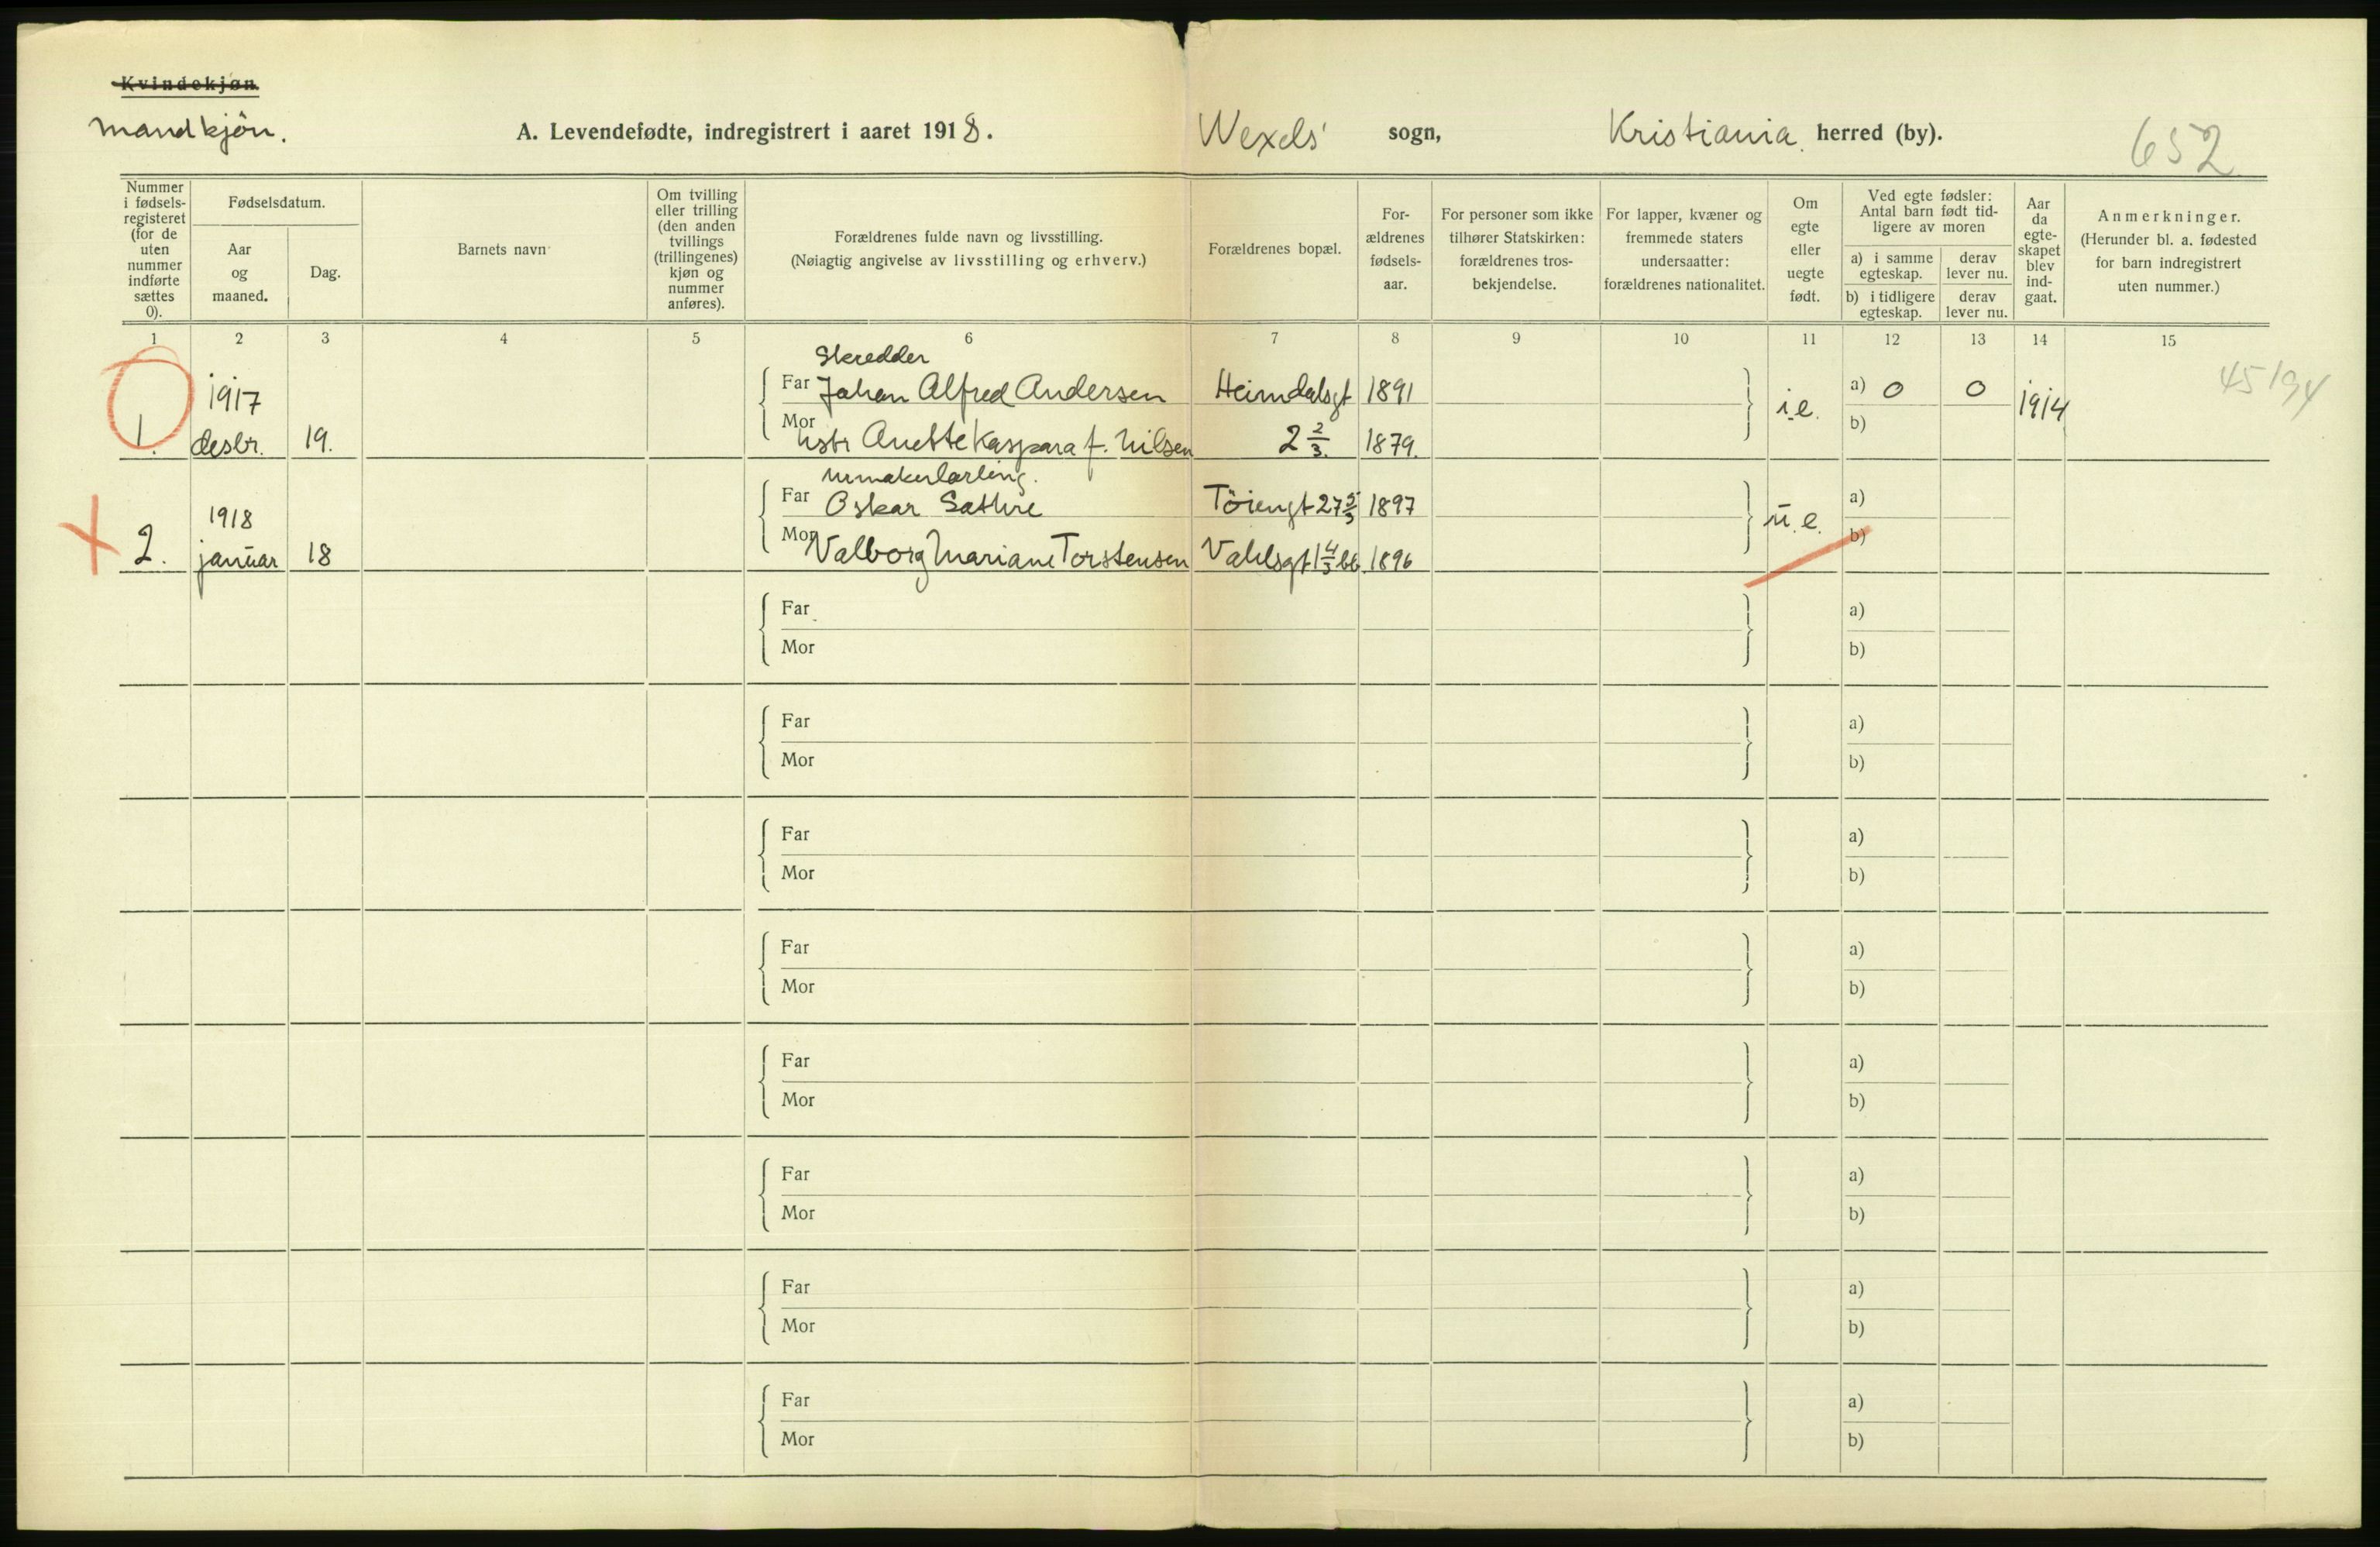 Kvindekjøn.
Mandkjøn.
A. Levendefødte, indregistrert i aaret 1918. Wexels' sogn, Kristiania herred (by).
652
Nummer i fødsels-registeret (for de uten nummer indførte sættes 0).
Fødselsdatum.
Aar og maaned.
Dag.
Barnets navn
Om tvilling eller trilling (den anden tvillings (trillingenes) kjøn og nummer anføres).
Forældrenes fulde navn og livsstilling.
(Nøiagtig angivelse av livsstilling og erhverv.)
Forældrenes bopæl.
For-ældrenes fødsels-aar.
For personer som ikke tilhører Statskirken: forældrenes tros-bekjendelse.
For lapper, kvæner og fremmede staters undersaatter: forældrenes nationalitet.
Om egte eller uegte født.
Ved egte fødsler: Antal barn født tid-ligere av moren
a) i samme egteskap. derav lever nu.
b) i tidligere egteskap. derav lever nu.
Aar da egte-skapet blev ind-gaat.
Anmerkninger.
(Herunder bl. a. fødested for barn indregistrert uten nummer.)
1 2 3 4 5 6 7 8 9 10 11 12 13 14 15
Skredder
1917 Far Johan Alfred Andersen Heimdalsgt 1891 i.e. a) 0 0 1914 45194
1. desbr. 19. Mor hstr Anette Kaspara f. Nilsen 2 2/3. 1879. b)
Far Oskar Sæthre Töiengt 27 1897 a)
1918 ü.e.
2. januar 18 Mor Valborg Mariane Torstensen Vahlsgt 1 4/3 1896 b)
Far a)
Mor b)
Far a)
Mor b)
Far a)
Mor b)
Far a)
Mor b)
Far a)
Mor b)
Far a)
Mor b)
Far a)
Mor b)
Far a)
Mor b)